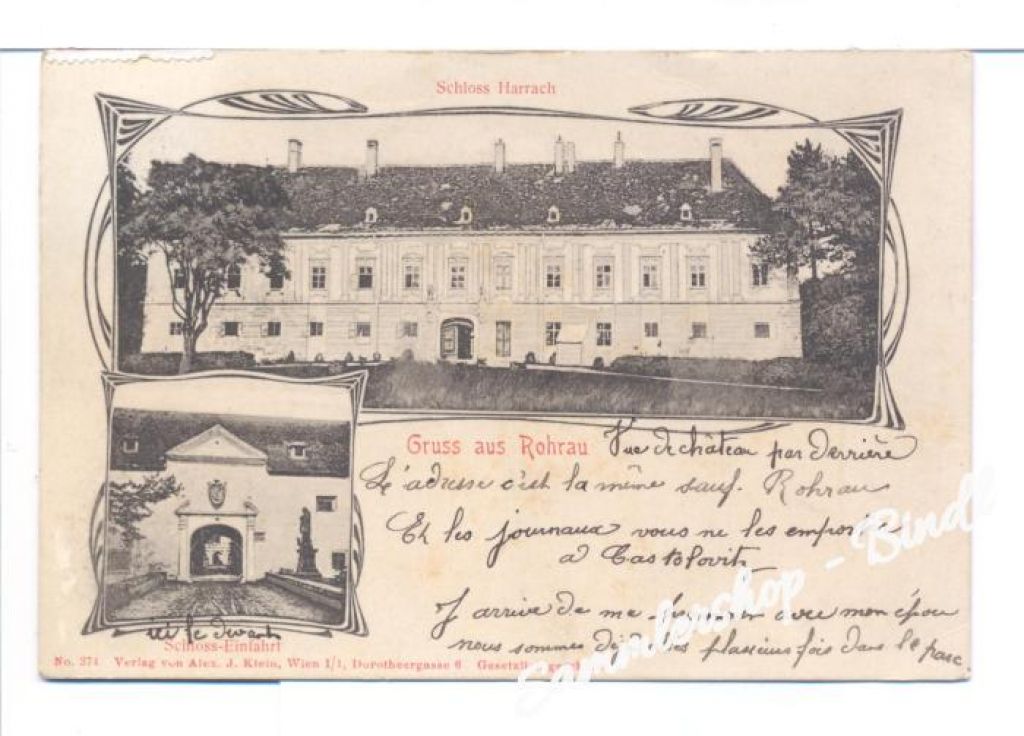 Schloss Harrach
Gruss aus Rohrau
Vue de château par derrière
L'adresse c'est la même sauf. Rohrau
Et les journaux vous ne les
a
J arrive de me avec mon époux
nous sommes déjà plusieurs fois dans le parc
ici le devant
Schloss-Einfahrt
No. 374 Verlag von Alex. J. Klein, Wien I/1, Dorotheergasse 6
Sammlershop - Bindl